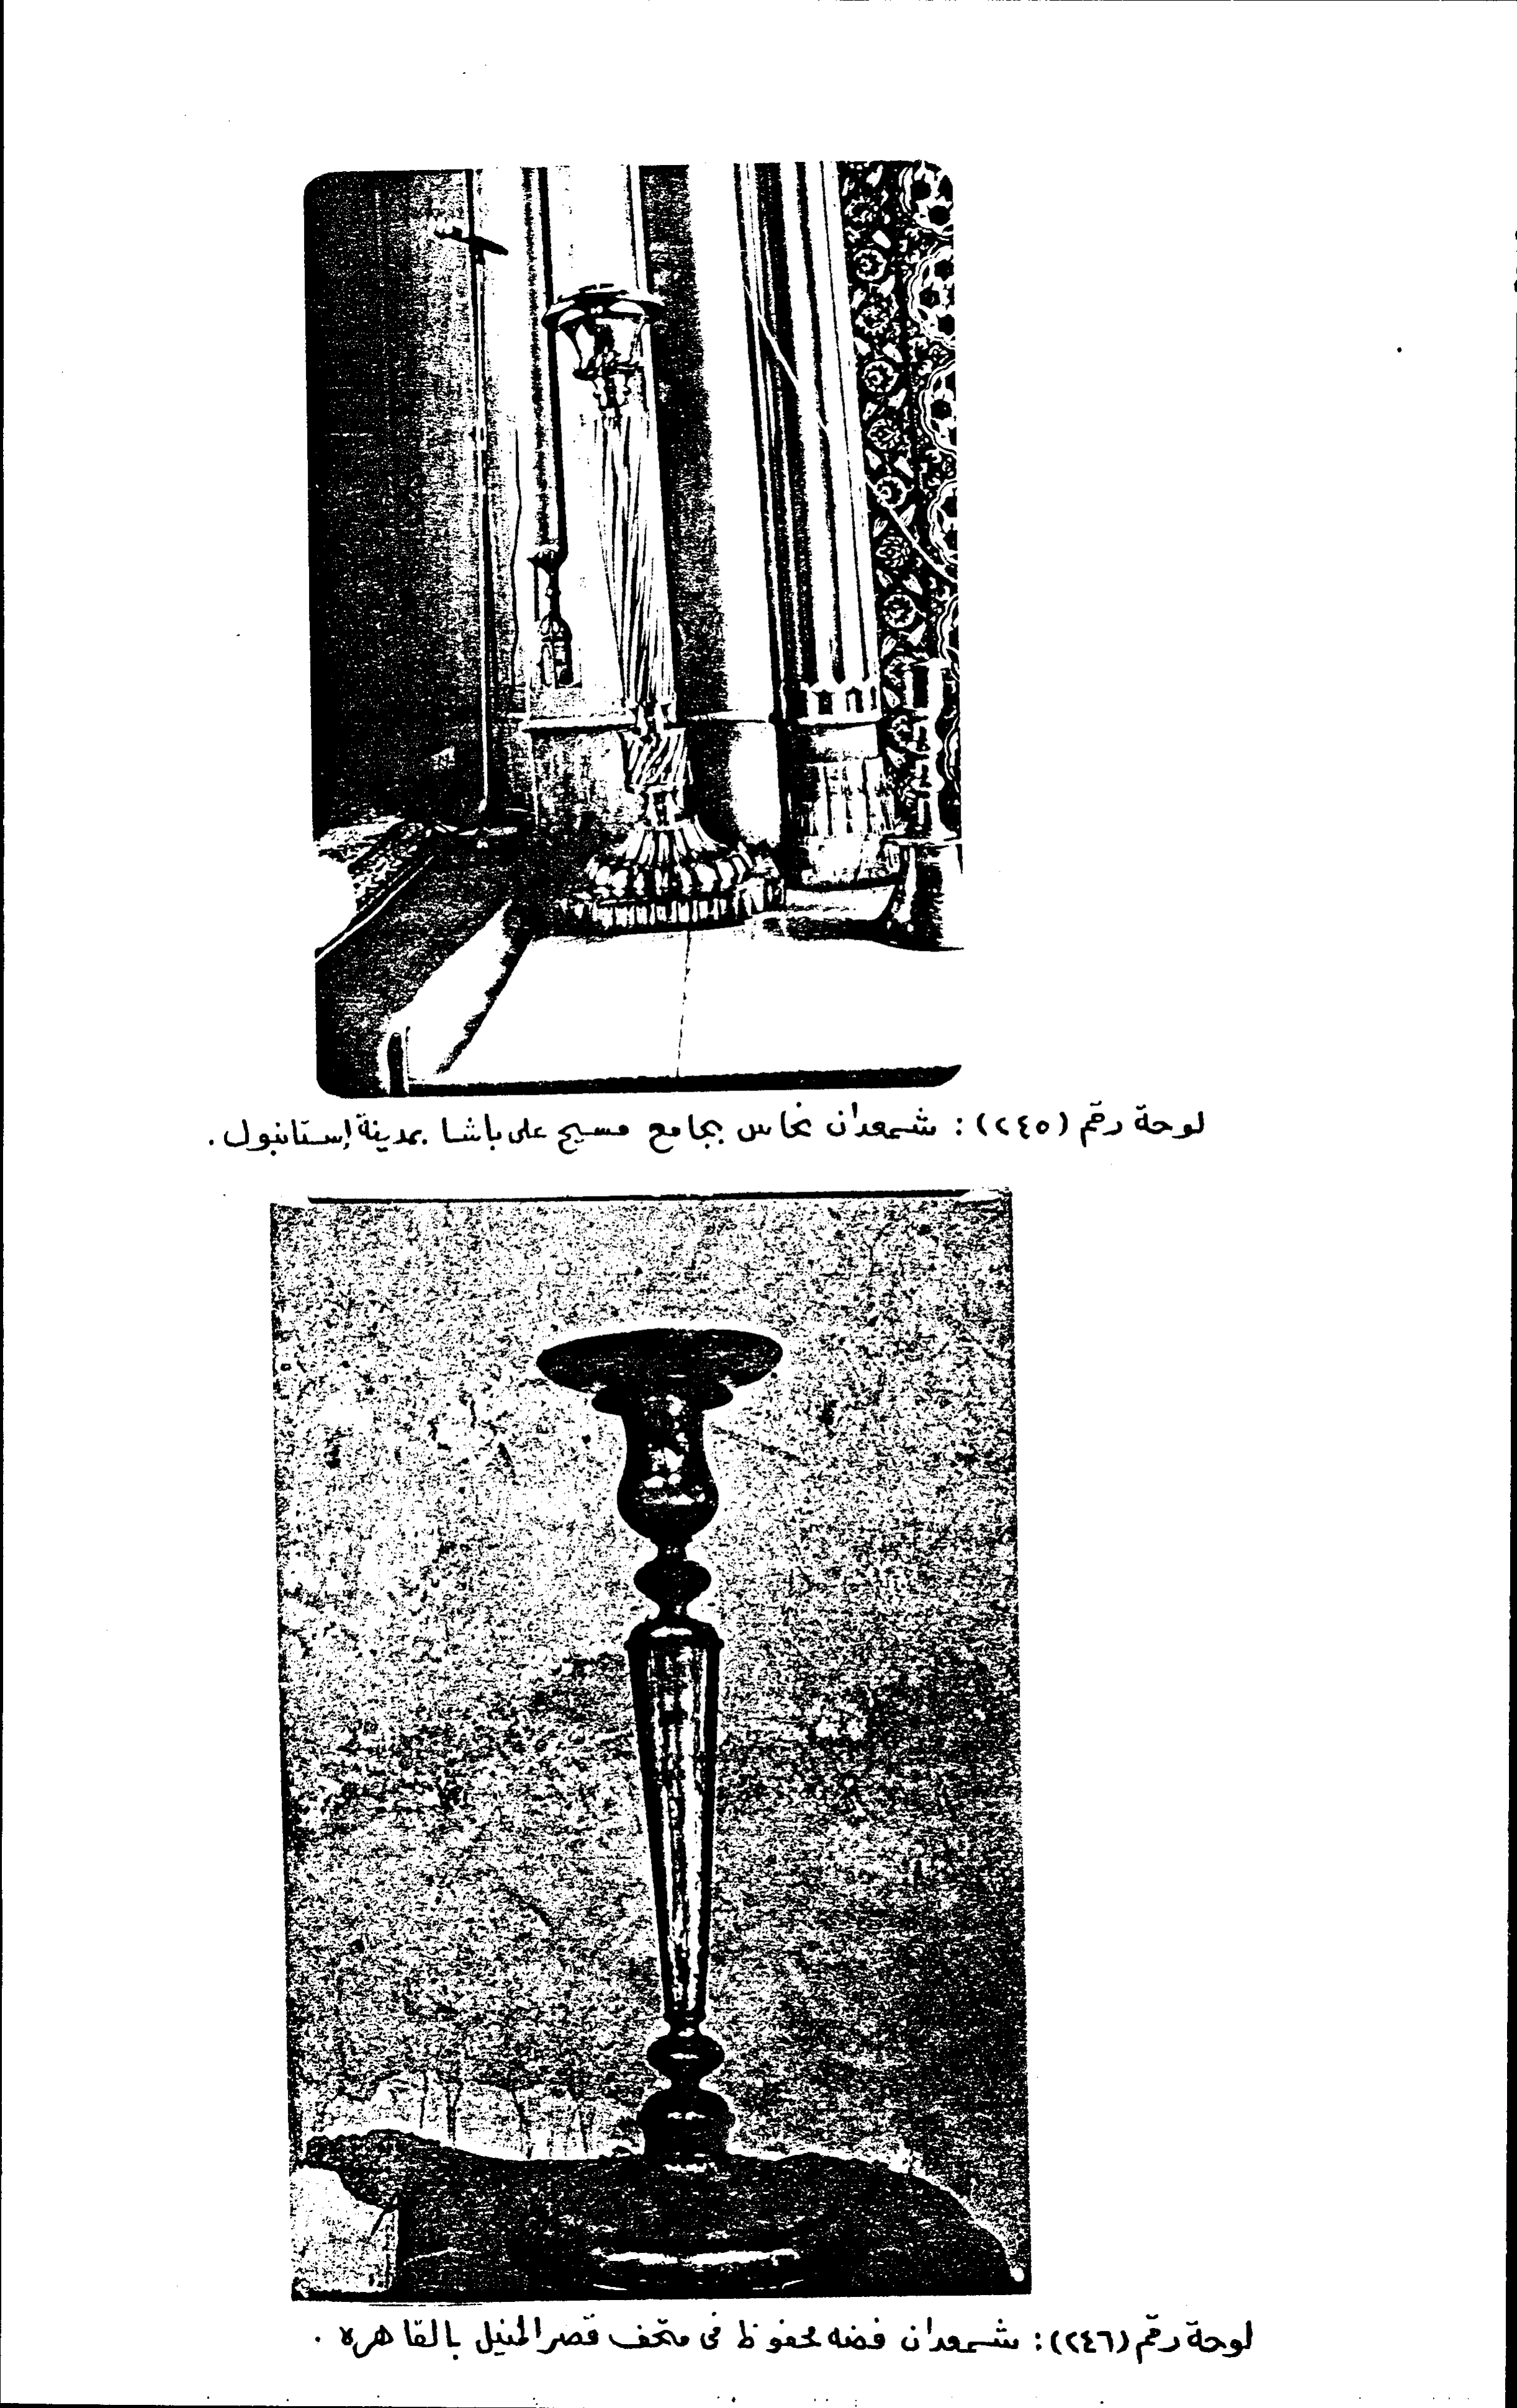 لوحة رقم (٢٤٥) : شمعدان نحاس بجامع مسيح على باشا بمدينة إستانبول .
لوحة رقم (٢٤٦) : شمعدان فضه محفوظ فى متحف قصر المنيل بالقاهره .